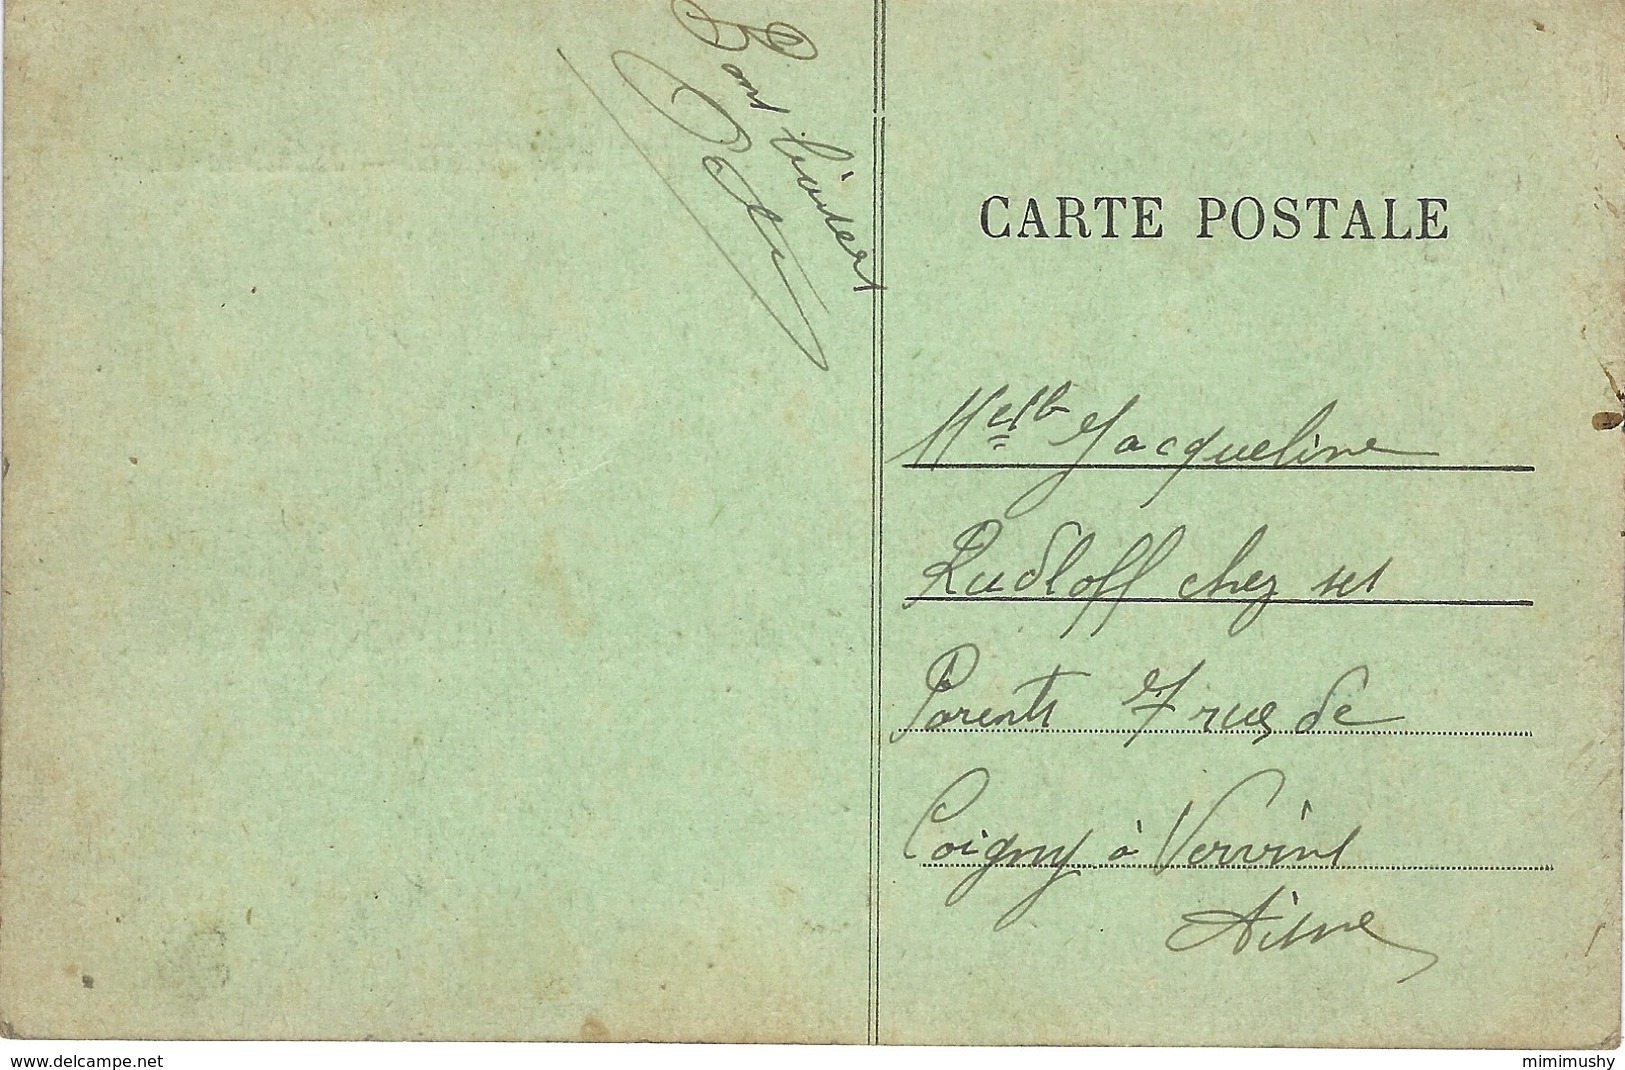 Bons baisers
CARTE POSTALE
Melle Jacqueline
Rudloff chez ses
Parents 7 rue de
Coigny à Vervins
Aisne
www.delcampe.net
mimimushy